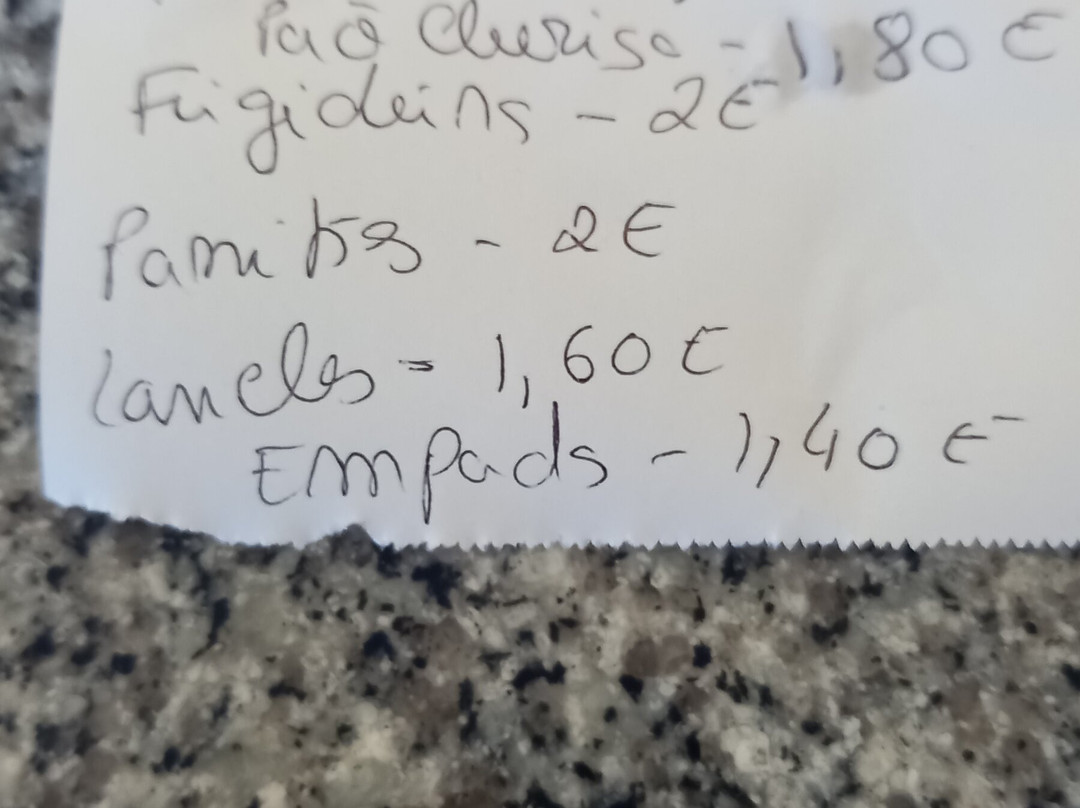 Paõ Churiso - 1,80 €
Frigideirs - 2€
Panikes - 2€
Lanchs - 1,60 €
Empads - 1,40 €